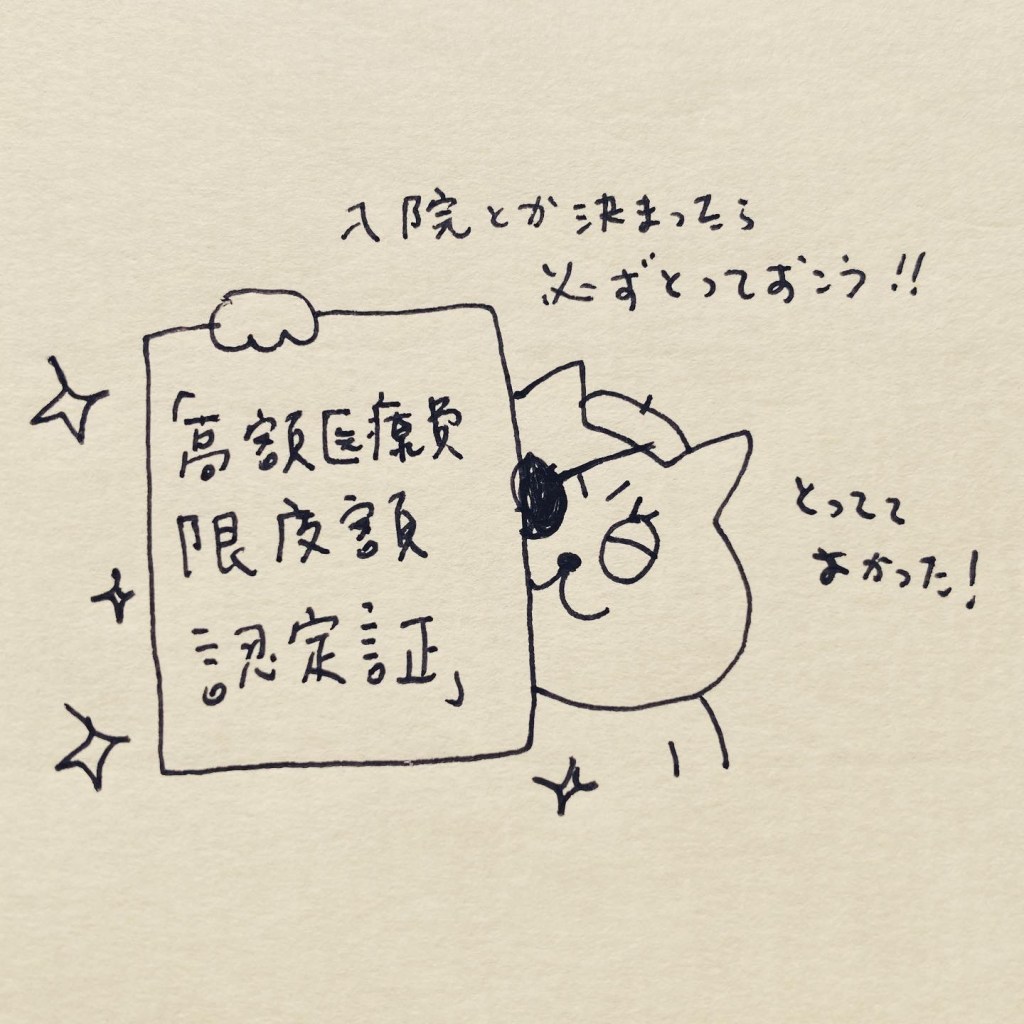 入院とか決まったら
必ずとっておこう!!
「高額医療費
限度額
認定証」
とってて
よかった!